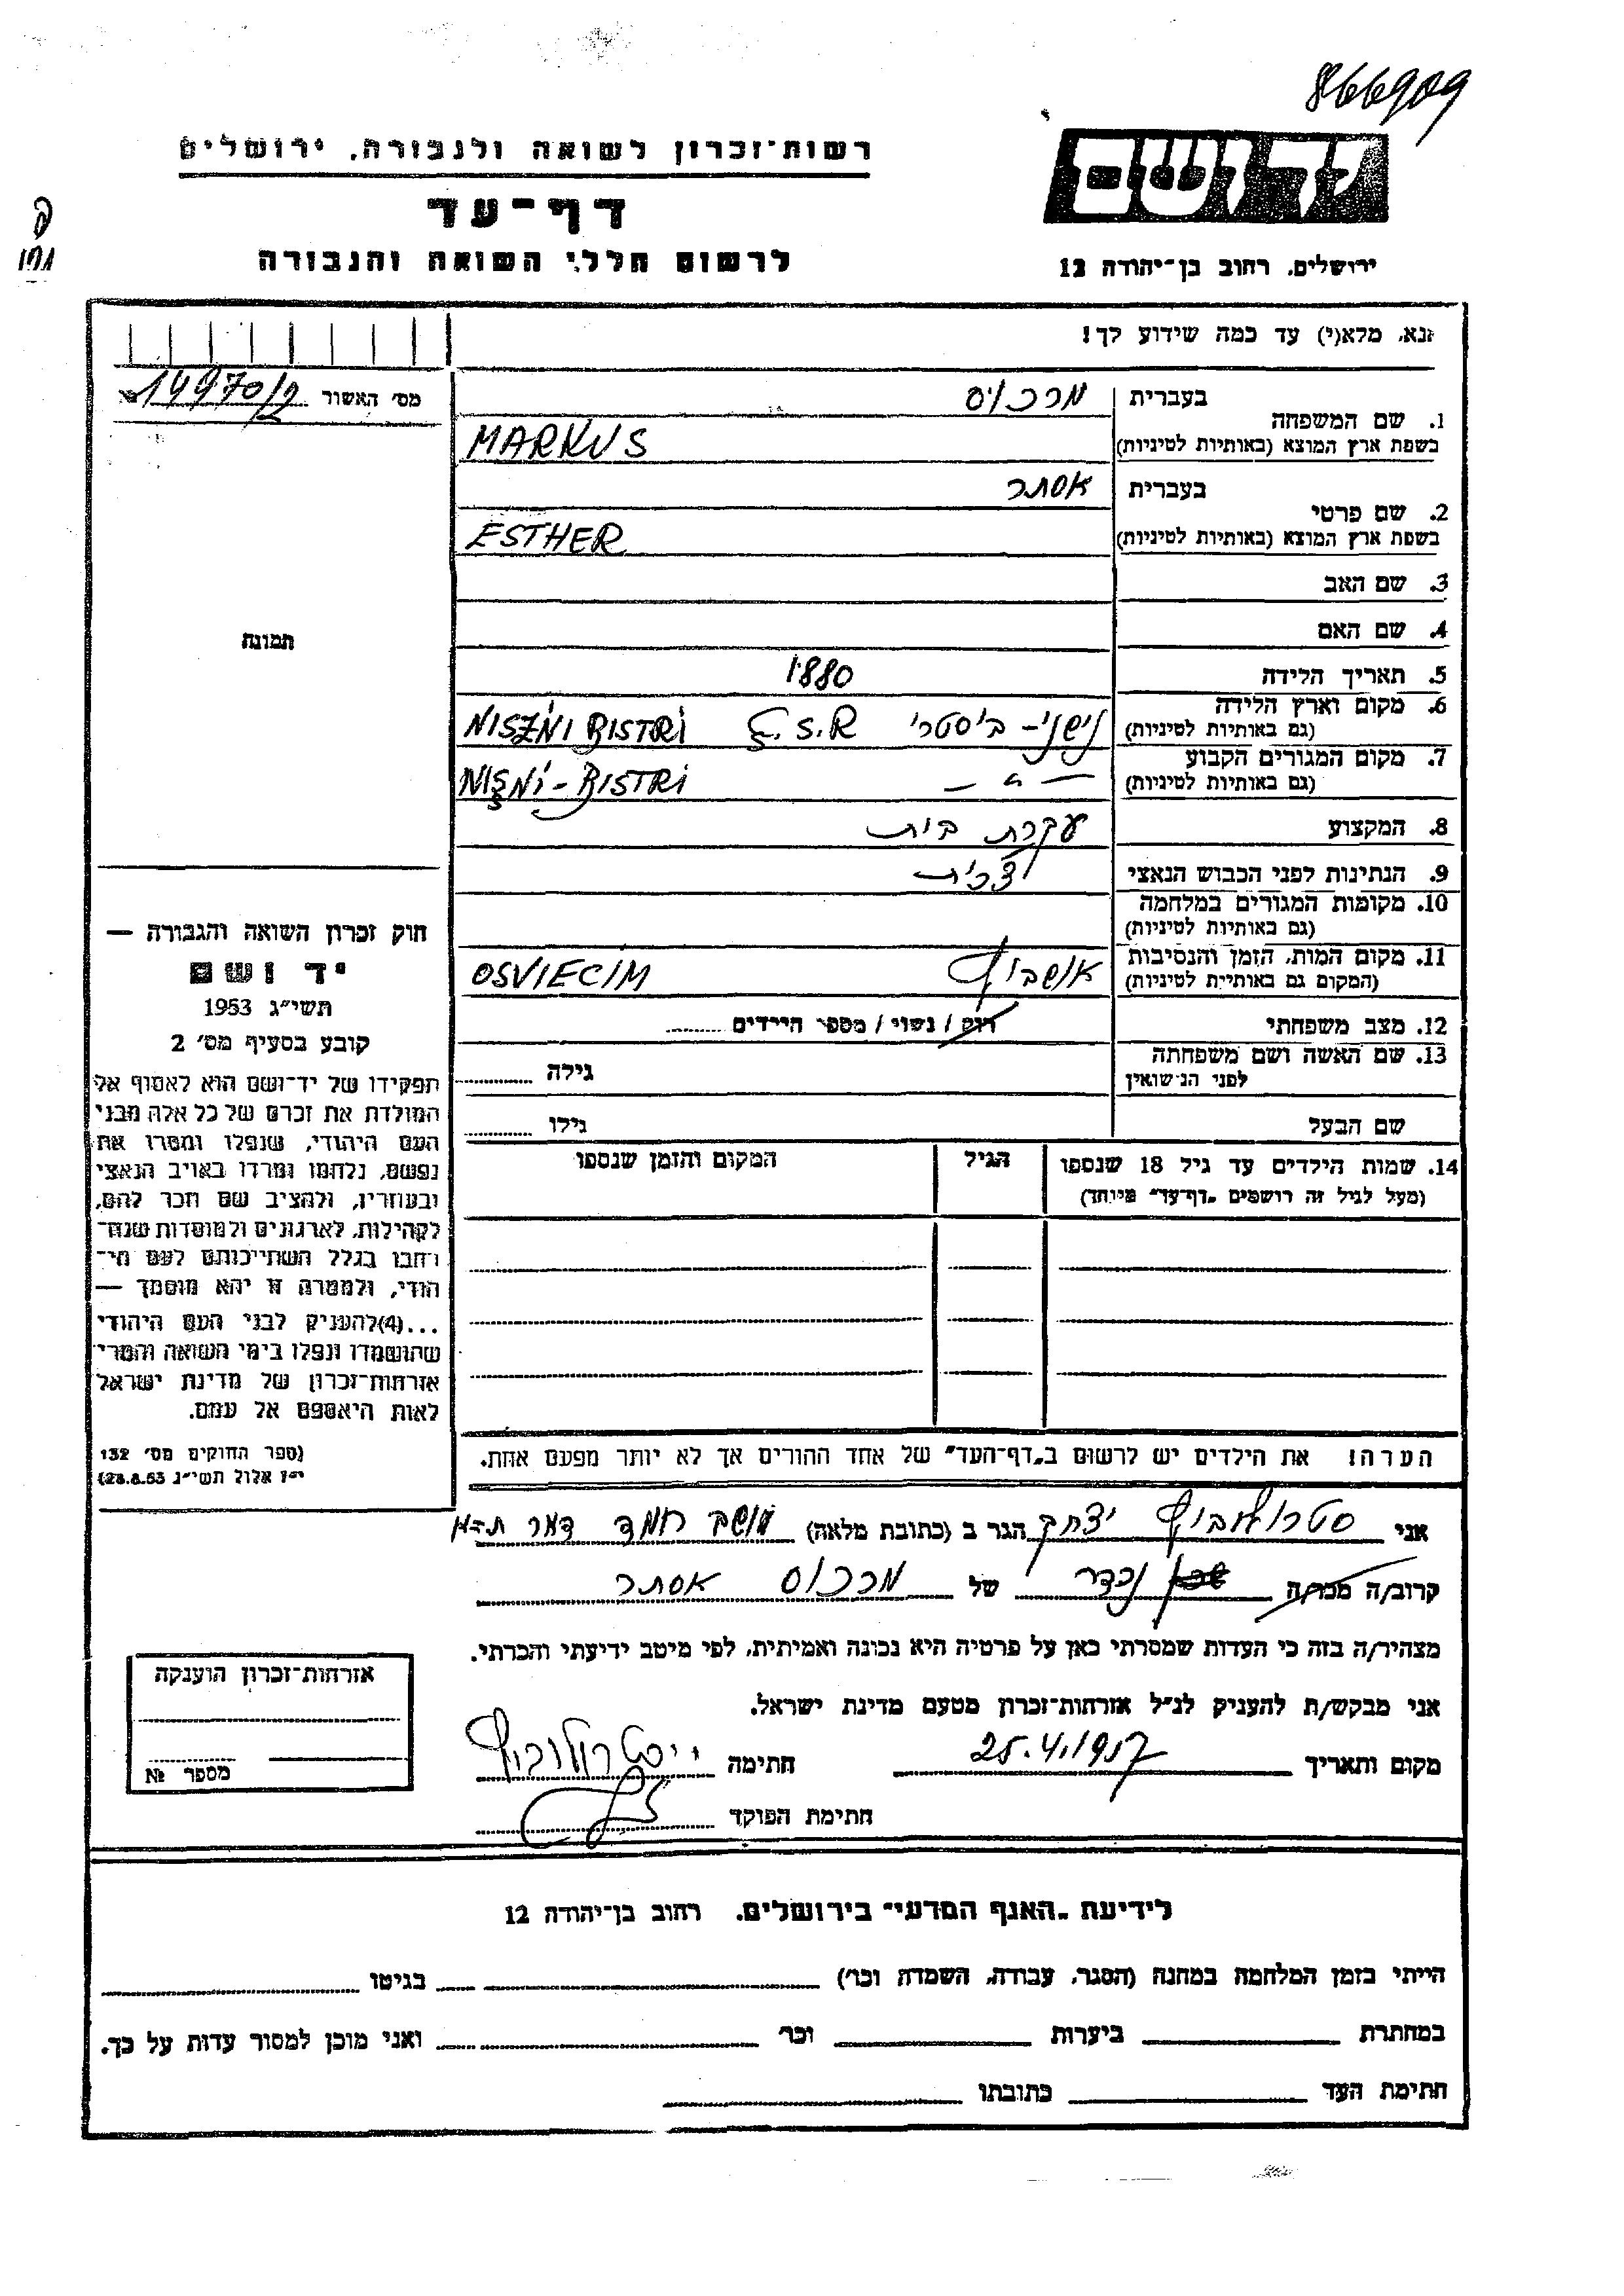 866909
רשות־זכרון לשואה ולגבורה, ירושלים
יד ושם
דף־עד
לרשום חללי השואה והגבורה
ירושלים, רחוב בן־יהודה 12
נא, מלא(י) עד כמה שידוע לך!
מס׳ האשור 14970/2
1. שם המשפחה
בעברית מרכוס
בשפת ארץ המוצא (באותיות לטיניות) MARKUS
2. שם פרטי
בעברית אסתר
בשפת ארץ המוצא (באותיות לטיניות) ESTHER
3. שם האב
4. שם האם
תמונה
5. תאריך הלידה 1880
6. מקום וארץ הלידה
(גם באותיות לטיניות) נישני - ביסטרי Č.S.R NISZNI BISTRI
7. מקום המגורים הקבוע
(גם באותיות לטיניות) — " — NIŞNI - BISTRI
8. המקצוע עקרת בית
9. הנתינות לפני הכבוש הנאצי צ'כית
10. מקומות המגורים במלחמה
(גם באותיות לטיניות)
11. מקום המות, הזמן והנסיבות
(המקום גם באותיות לטיניות) אושביץ OSVIECIM
12. מצב משפחתי רווק / נשוי / מספר הילדים
13. שם האשה ושם משפחתה
לפני הנישואין גילה
שם הבעל גילו
14. שמות הילדים עד גיל 18 שנספו הגיל המקום והזמן שנספו
(מעל לגיל זה רושמים „דף־עד" מיוחד)
חוק זכרון השואה והגבורה —
יד ושם
תשי״ג 1953
קובע בסעיף מס׳ 2
תפקידו של יד־ושם הוא לאסוף אל
המולדת את זכרם של כל אלה מבני
העם היהודי, שנפלו ומסרו את
נפשם, נלחמו ומרדו באויב הנאצי
ובעוזריו, ולהציב שם וזכר להם,
לקהילות, לארגונים ולמוסדות שנח־
רבו בגלל השתייכותם לעם הי־
הודי, ולמטרה זו יהא מוסמך —
...(4) להעניק לבני העם היהודי
שהושמדו ונפלו בימי השואה והמרי
אזרחות־זכרון של מדינת ישראל
לאות היאספם אל עמם.
(ספר החוקים מס׳ 132
י״ז אלול תשי״ג 28.8.53)
הערה! את הילדים יש לרשום ב„דף־העד" של אחד ההורים אך לא יותר מפעם אחת.
אני סטרולוביץ יצחק הגר ב (כתובת מלאה) מושב חמד דאר ת-א
קרוב/ה מכר/ה נכדר של מרכוס אסתר
מצהיר/ה בזה כי העדות שמסרתי כאן על פרטיה היא נכונה ואמיתית, לפי מיטב ידיעתי והכרתי.
אני מבקש/ת להעניק לנ״ל אזרחות־זכרון מטעם מדינת ישראל.
מקום ותאריך 25.4.1957 חתימה י. סטרולוביץ
חתימת הפוקד
אזרחות־זכרון הוענקה
מספר №
לידיעת „האגף המדעי" בירושלים, רחוב בן־יהודה 12
הייתי בזמן המלחמה במחנה (הסגר, עבודה, השמדה וכו׳) בגיטו
במחתרת ביערות וכו׳ ואני מוכן למסור עדות על כך.
חתימת העד כתובתו